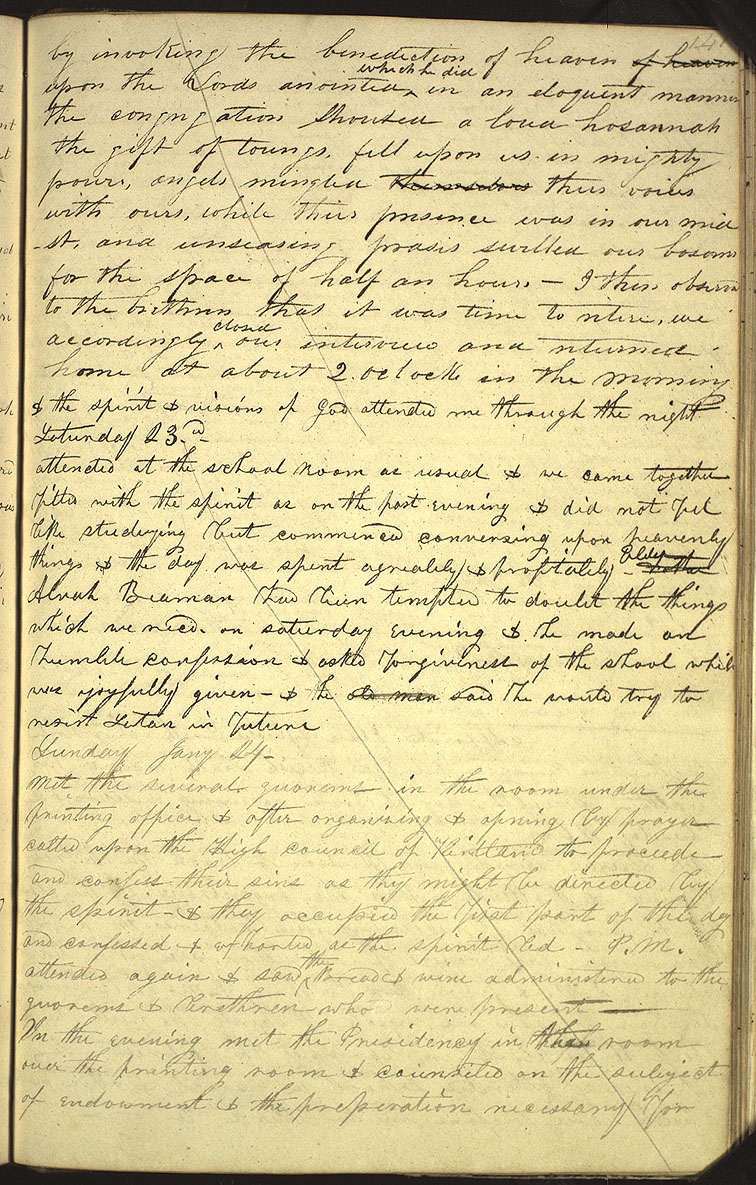 141
by invoking the benediction of heaven of heaven
upon the Lords anointed which he did in an eloquent manner
the congregation shouted a loud hosannah
the gift of toungs, fell upon us in mighty
power, angels mingled themselves their voices
with ours, while their presence was in our mid
-st, and unseasing prasis swelled our bosoms
for the space of half an hour, – I then observed
to the brethren that it was time to retire, we
accordingly closed our interview and returned
home at about 2. oclock in the morning
& the spirit & visions of God attended me through the night
Saturday 23.rd
attended at the school room as usual & we came together
filled with the spirit as on the past evening & did not feel
like studying but commenced conversing upon heavenly
things & the day was spent agreably & profitably – Elder
Alvah Beaman had been tempted to doubt the things
which we recd. on saturday evening & he made an
humble confession & asked forgiveness of the school whih
was joyfully given – & the old man said he would try to
resist Satan in future
Sunday Jany 24–
Met the several quorems in the room under the
printing office & after organising & opning by prayer
called upon the High council of Kirtland to proceede
and confess their sins as they might be directed by
the spirit – & they occupied the first part of the day
and confessed & exhorted as the spirit led – P.M.
attended again & saw the bread & wine administered to the
quorems & brethren who were present –
In the evening met the Presidency in the room
over the printing room & counseled on the subject
of endowment & the preperation necessary for